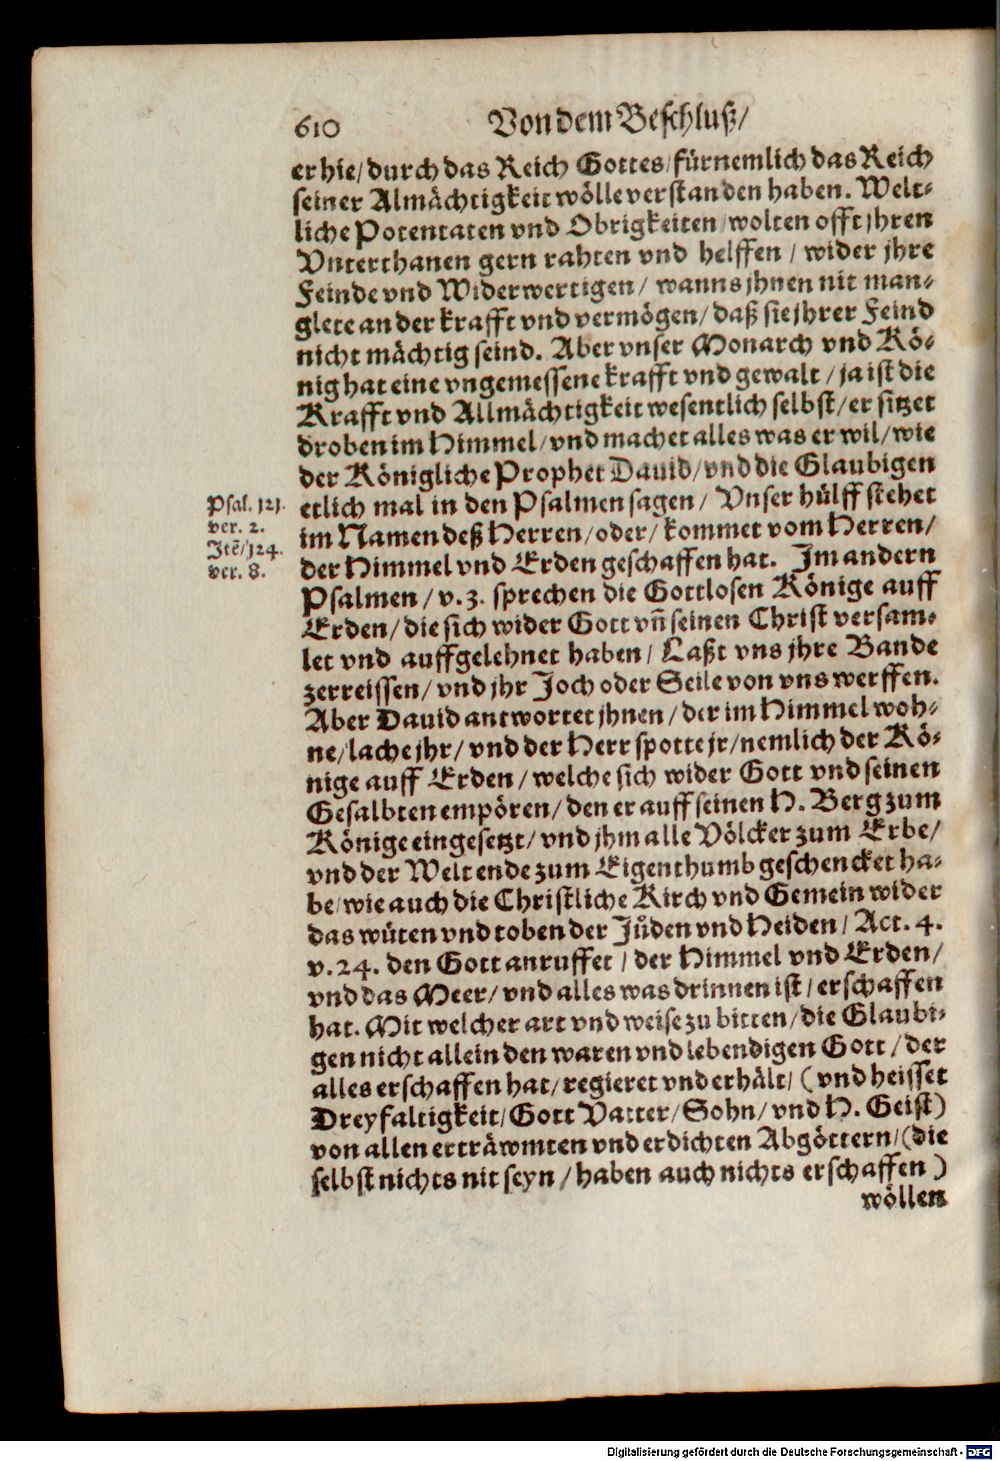 610 Von dem Beschluß/
er hie/ durch das Reich Gottes/ fürnemlich das Reich
seiner Almächtigkeit wölle verstanden haben. Welt-
liche Potentaten vnd Obrigkeiten/ wolten offt jhren
Vnterthanen gern rahten vnd helffen/ wider jhre
Feinde vnd Widerwertigen/ wanns jhnen nit man-
glete an der krafft vnd vermögen/ daß sie jhrer Feind
nicht mächtig seind. Aber vnser Monarch vnd Kö-
nig hat eine vngemessene krafft vnd gewalt/ ja ist die
Krafft vnd Allmächtigkeit wesentlich selbst/ er sitzet
droben im Himmel/ vnd machet alles was er wil/ wie
der Königliche Prophet Dauid/ vnd die Glaubigen
etlich mal in den Psalmen sagen/ Vnser hülff stehet
im Namen deß Herren/ oder/ kommet vom Herren/
der Himmel vnd Erden geschaffen hat. Im andern
Psalmen/ v. 3. sprechen die Gottlosen Könige auff
Erden/ die sich wider Gott vñ seinen Christ versam-
let vnd auffgelehnet haben/ Laßt vns jhre Bande
zerreissen/ vnd jhr Joch oder Seile von vns werffen.
Aber Dauid antwortet jhnen/ der im Himmel woh-
ne/ lache jhr/ vnd der Herr spotte jr/ nemlich der Kö-
nige auff Erden/ welche sich wider Gott vnd seinen
Gesalbten empören/ den er auff seinen H. Berg zum
Könige eingesetzt/ vnd jhm alle Völcker zum Erbe/
vnd der Welt ende zum Eigenthumb geschencket ha-
be/ wie auch die Christliche Kirch vnd Gemein wider
das wüten vnd toben der Jůden vnd Heiden/ Act. 4.
v. 24. den Gott anruffet/ der Himmel vnd Erden/
vnd das Meer/ vnd alles was drinnen ist/ erschaffen
hat. Mit welcher art vnd weise zu bitten/ die Glaubi-
gen nicht allein den waren vnd lebendigen Gott/ der
alles erschaffen hat/ regieret vnd erhält/ (vnd heisset
Dreyfaltigkeit/ Gott Vatter/ Sohn/ vnd H. Geist)
von allen erträwmten vnd erdichten Abgöttern/ (die
selbst nichts nit seyn/ haben auch nichts erschaffen)
wöllen
Psal. 121.
ver. 2.
Itē/ 124.
ver. 8.
Digitalisierung gefördert durch die Deutsche Forschungsgemeinschaft - DFG